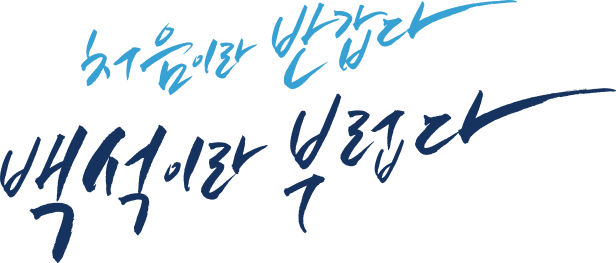 처음이라 반갑다
백석이라 부럽다